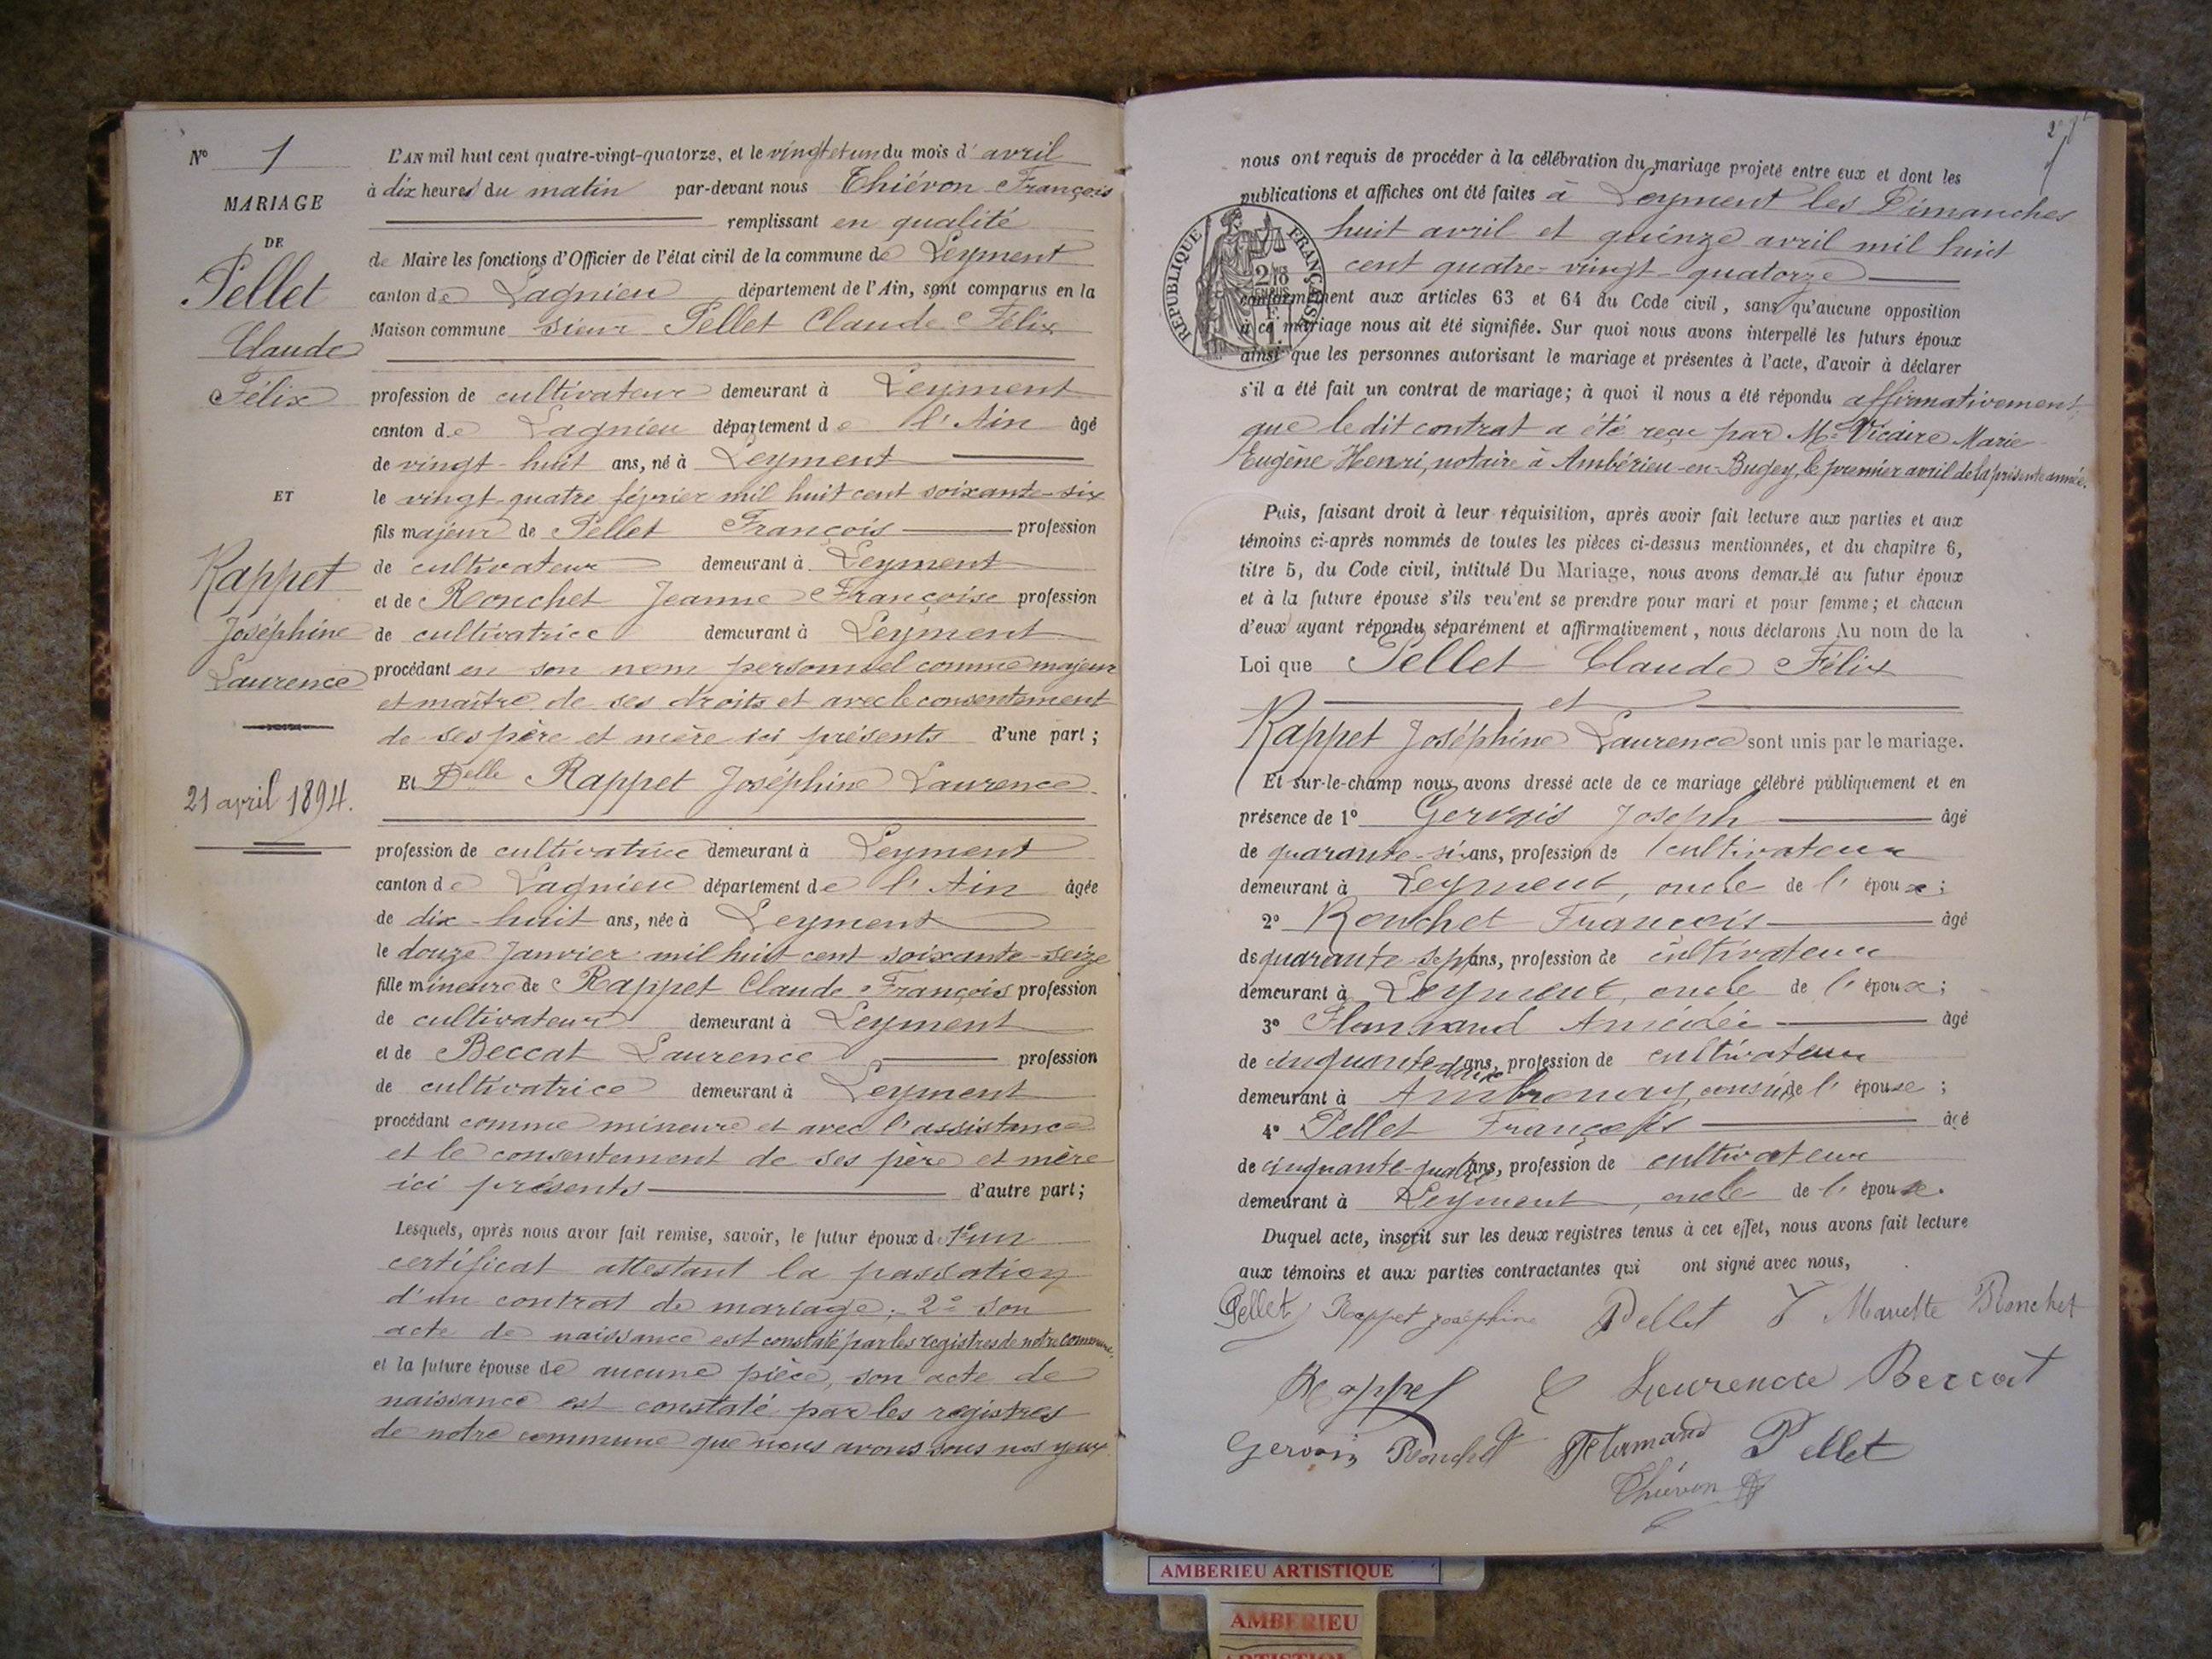 N° 1
MARIAGE
DE
Pellet
Claude
Félix
ET
Rappet
Joséphine
Laurence
21 avril 1894.
L'AN mil huit cent quatre-vingt-quatorze, et le vingt et un du mois d'avril
à dix heures du matin par-devant nous Thiévon François
remplissant en qualité
de Maire les fonctions d'Officier de l'état civil de la commune de Leyment
canton de Lagnieu département de l'Ain, sont comparus en la
Maison commune sieur Pellet Claude Félix
profession de cultivateur demeurant à Leyment
canton de Lagnieu département de l'Ain âgé
de vingt-huit ans, né à Leyment
le vingt-quatre février mil huit cent soixante-six
fils majeur de Pellet François profession
de cultivateur demeurant à Leyment
et de Ronchet Jeanne Françoise profession
de cultivatrice demeurant à Leyment
procédant en son nom personnel comme majeur
et maître de ses droits et avec le consentement
de ses père et mère ici présents d'une part;
Et Delle Rappet Joséphine Laurence
profession de cultivatrice demeurant à Leyment
canton de Lagnieu département de l'Ain âgée
de dix-huit ans, née à Leyment
le douze Janvier mil huit cent soixante-seize
fille mineure de Rappet Claude François profession
de cultivateur demeurant à Leyment
et de Beccat Laurence profession
de cultivatrice demeurant à Leyment
procédant comme mineure et avec l'assistance
et le consentement de ses père et mère
ici présents d'autre part;
Lesquels, après nous avoir fait remise, savoir, le futur époux de 1° un
certificat attestant la passation
d'un contrat de mariage; 2° son
acte de naissance est constaté par les registres de notre commune,
et la future épouse de aucune pièce, son acte de
naissance est constaté par les registres
de notre commune que nous avons sous nos yeux
nous ont requis de procéder à la célébration du mariage projeté entre eux et dont les
publications et affiches ont été faites à Leyment les Dimanches
huit avril et quinze avril mil huit
cent quatre-vingt-quatorze
RÉPUBLIQUE FRANÇAISE
conformément aux articles 63 et 64 du Code civil, sans qu'aucune opposition
à ce mariage nous ait été signifiée. Sur quoi nous avons interpellé les futurs époux
ainsi que les personnes autorisant le mariage et présentes à l'acte, d'avoir à déclarer
s'il a été fait un contrat de mariage; à quoi il nous a été répondu affirmativement
que le dit contrat a été reçu par Me Vicaire Marie
Eugène Henri, notaire à Ambérieu-en-Bugey, le premier avril de la présente année.
Puis, faisant droit à leur réquisition, après avoir fait lecture aux parties et aux
témoins ci-après nommés de toutes les pièces ci-dessus mentionnées, et du chapitre 6,
titre 5, du Code civil, intitulé Du Mariage, nous avons demandé au futur époux
et à la future épouse s'ils veulent se prendre pour mari et pour femme; et chacun
d'eux ayant répondu séparément et affirmativement, nous déclarons Au nom de la
Loi que Pellet Claude Félix
et
Rappet Joséphine Laurence sont unis par le mariage.
Et sur-le-champ nous avons dressé acte de ce mariage célébré publiquement et en
présence de 1° Gervais Joseph âgé
de quarante-six ans, profession de cultivateur
demeurant à Leyment, oncle de l'époux;
2° Ronchet François âgé
de quarante-sept ans, profession de cultivateur
demeurant à Leyment, oncle de l'époux;
3° Flammand Amédée âgé
de cinquante-deux ans, profession de cultivateur
demeurant à Ambronay, cousin de l'épouse;
4° Pellet François âgé
de cinquante-quatre ans, profession de cultivateur
demeurant à Leyment, oncle de l'épouse.
Duquel acte, inscrit sur les deux registres tenus à cet effet, nous avons fait lecture
aux témoins et aux parties contractantes qui ont signé avec nous,
Pellet Rappet Joséphine Pellet F Mariette Ronchet
Rappet C Laurence Beccat
Gervais Ronchet Flammand Pellet
Thiévon
AMBERIEU ARTISTIQUE
AMBERIEU
ARTISTIQUE